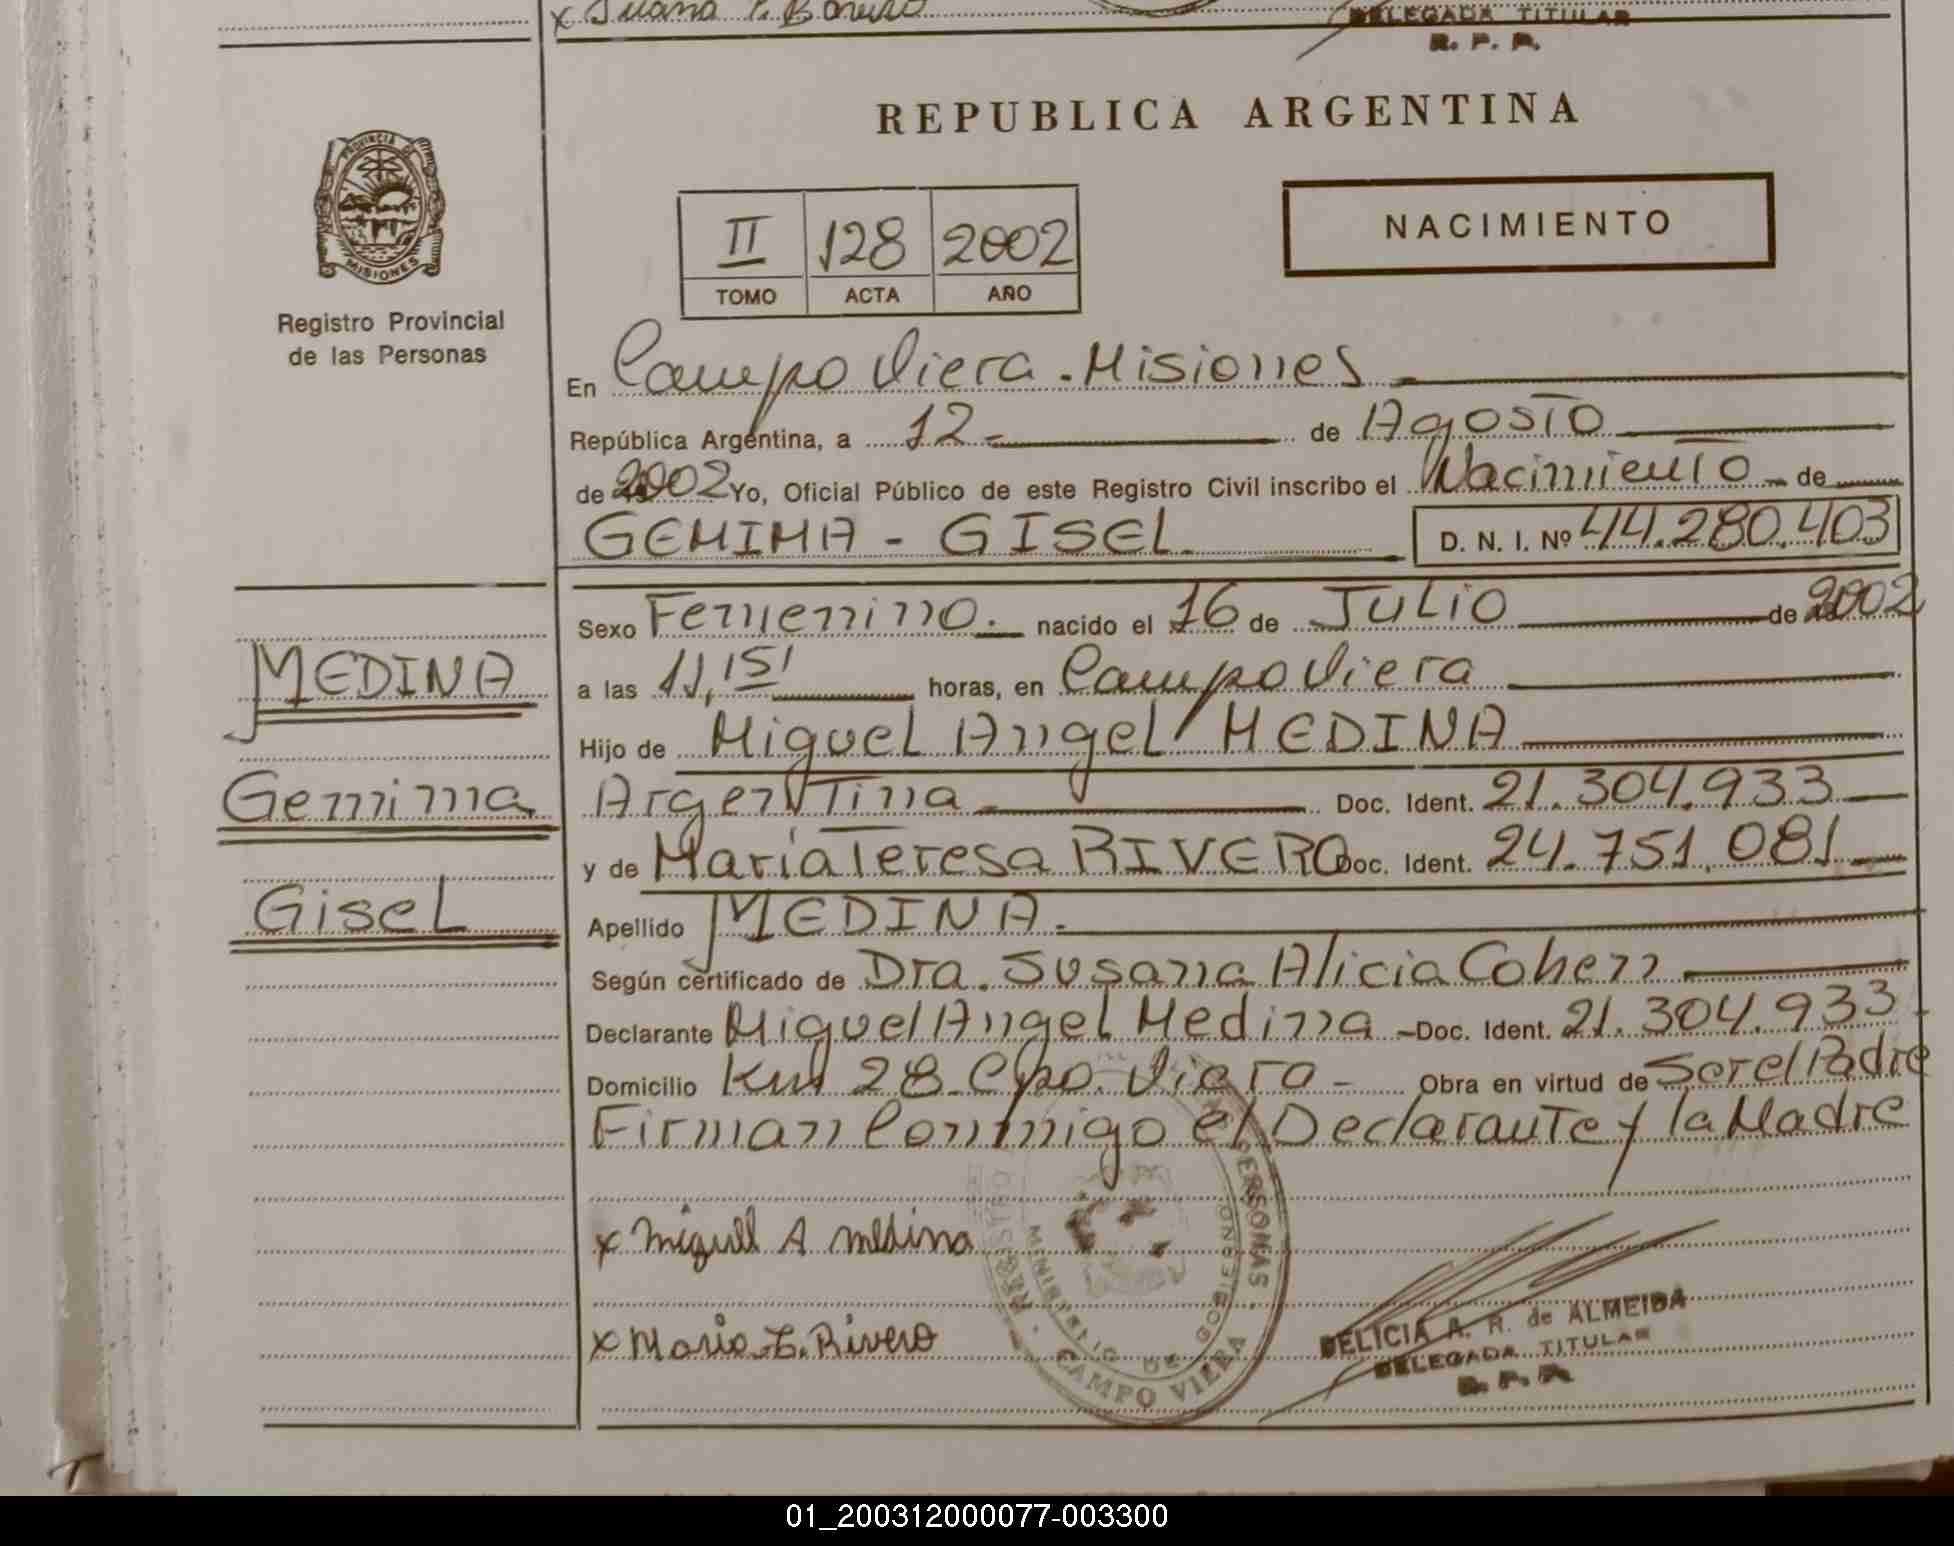 x Juana
DELEGADA TITULAR
R. P. P.
PROVINCIA DE
MISIONES
Registro Provincial
de las Personas
REPUBLICA ARGENTINA
II 128 2002
TOMO ACTA AÑO
NACIMIENTO
En Campo Viera - Misiones
República Argentina, a 12 de Agosto
de 2002 Yo, Oficial Público de este Registro Civil inscribo el Nacimiento de
GEMIMA - GISEL D. N. I. Nº 44.280.403
Sexo Femenino. nacido el 16 de JULIO de 2002
a las 11,15 horas, en Campo Viera
MEDINA
Hijo de Miguel Angel MEDINA
Gemima
Argentina Doc. Ident. 21.304.933
y de María Teresa RIVERO Doc. Ident. 24.751.081
Gisel
Apellido MEDINA
Según certificado de Dra. Susana Alicia Cohen
Declarante Miguel Angel Medina - Doc. Ident. 21.304.933
Domicilio Km 28 - Cpo. Viera - Obra en virtud de Ser el Padre
Firman Conmigo el Declarante y la Madre
x Miguel A Medina
x Maria T. Rivero
REGISTRO PERSONAS
MINISTERIO DE GOBIERNO
CAMPO VIERA
DELICIA A. R. de ALMEIDA
DELEGADA TITULAR
R. P. P.
01_200312000077-003300